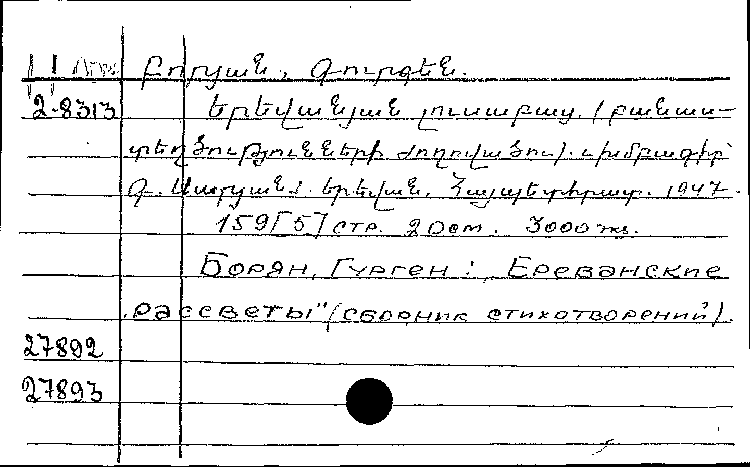 Բորյան, Գուրգեն.
2-8313 Երեվանյան լուսաբաց. (բանաս-
տեղծությունների ժողովածու). Խմբագիր՝
Գ. Սարյան։ Երեվան, Հայպետհրատ. 1947.
159[5] стр. 20 см. 3000 экз.
Борян, Гурген: „Ереванские
рассветы" (сборник стихотворений).
27892
27893